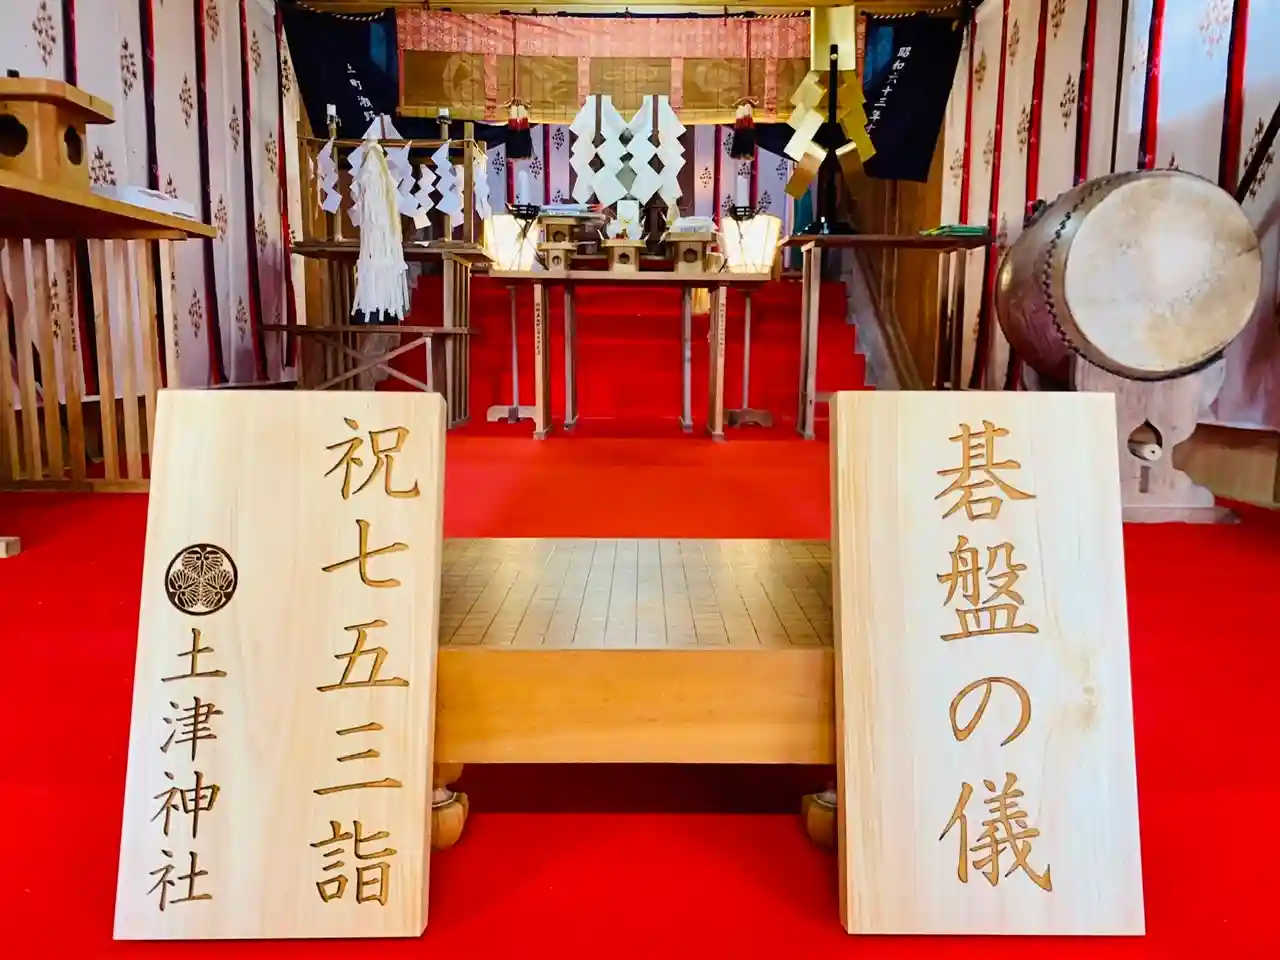 碁盤の儀
祝七五三詣
土津神社
昭和六十三年十